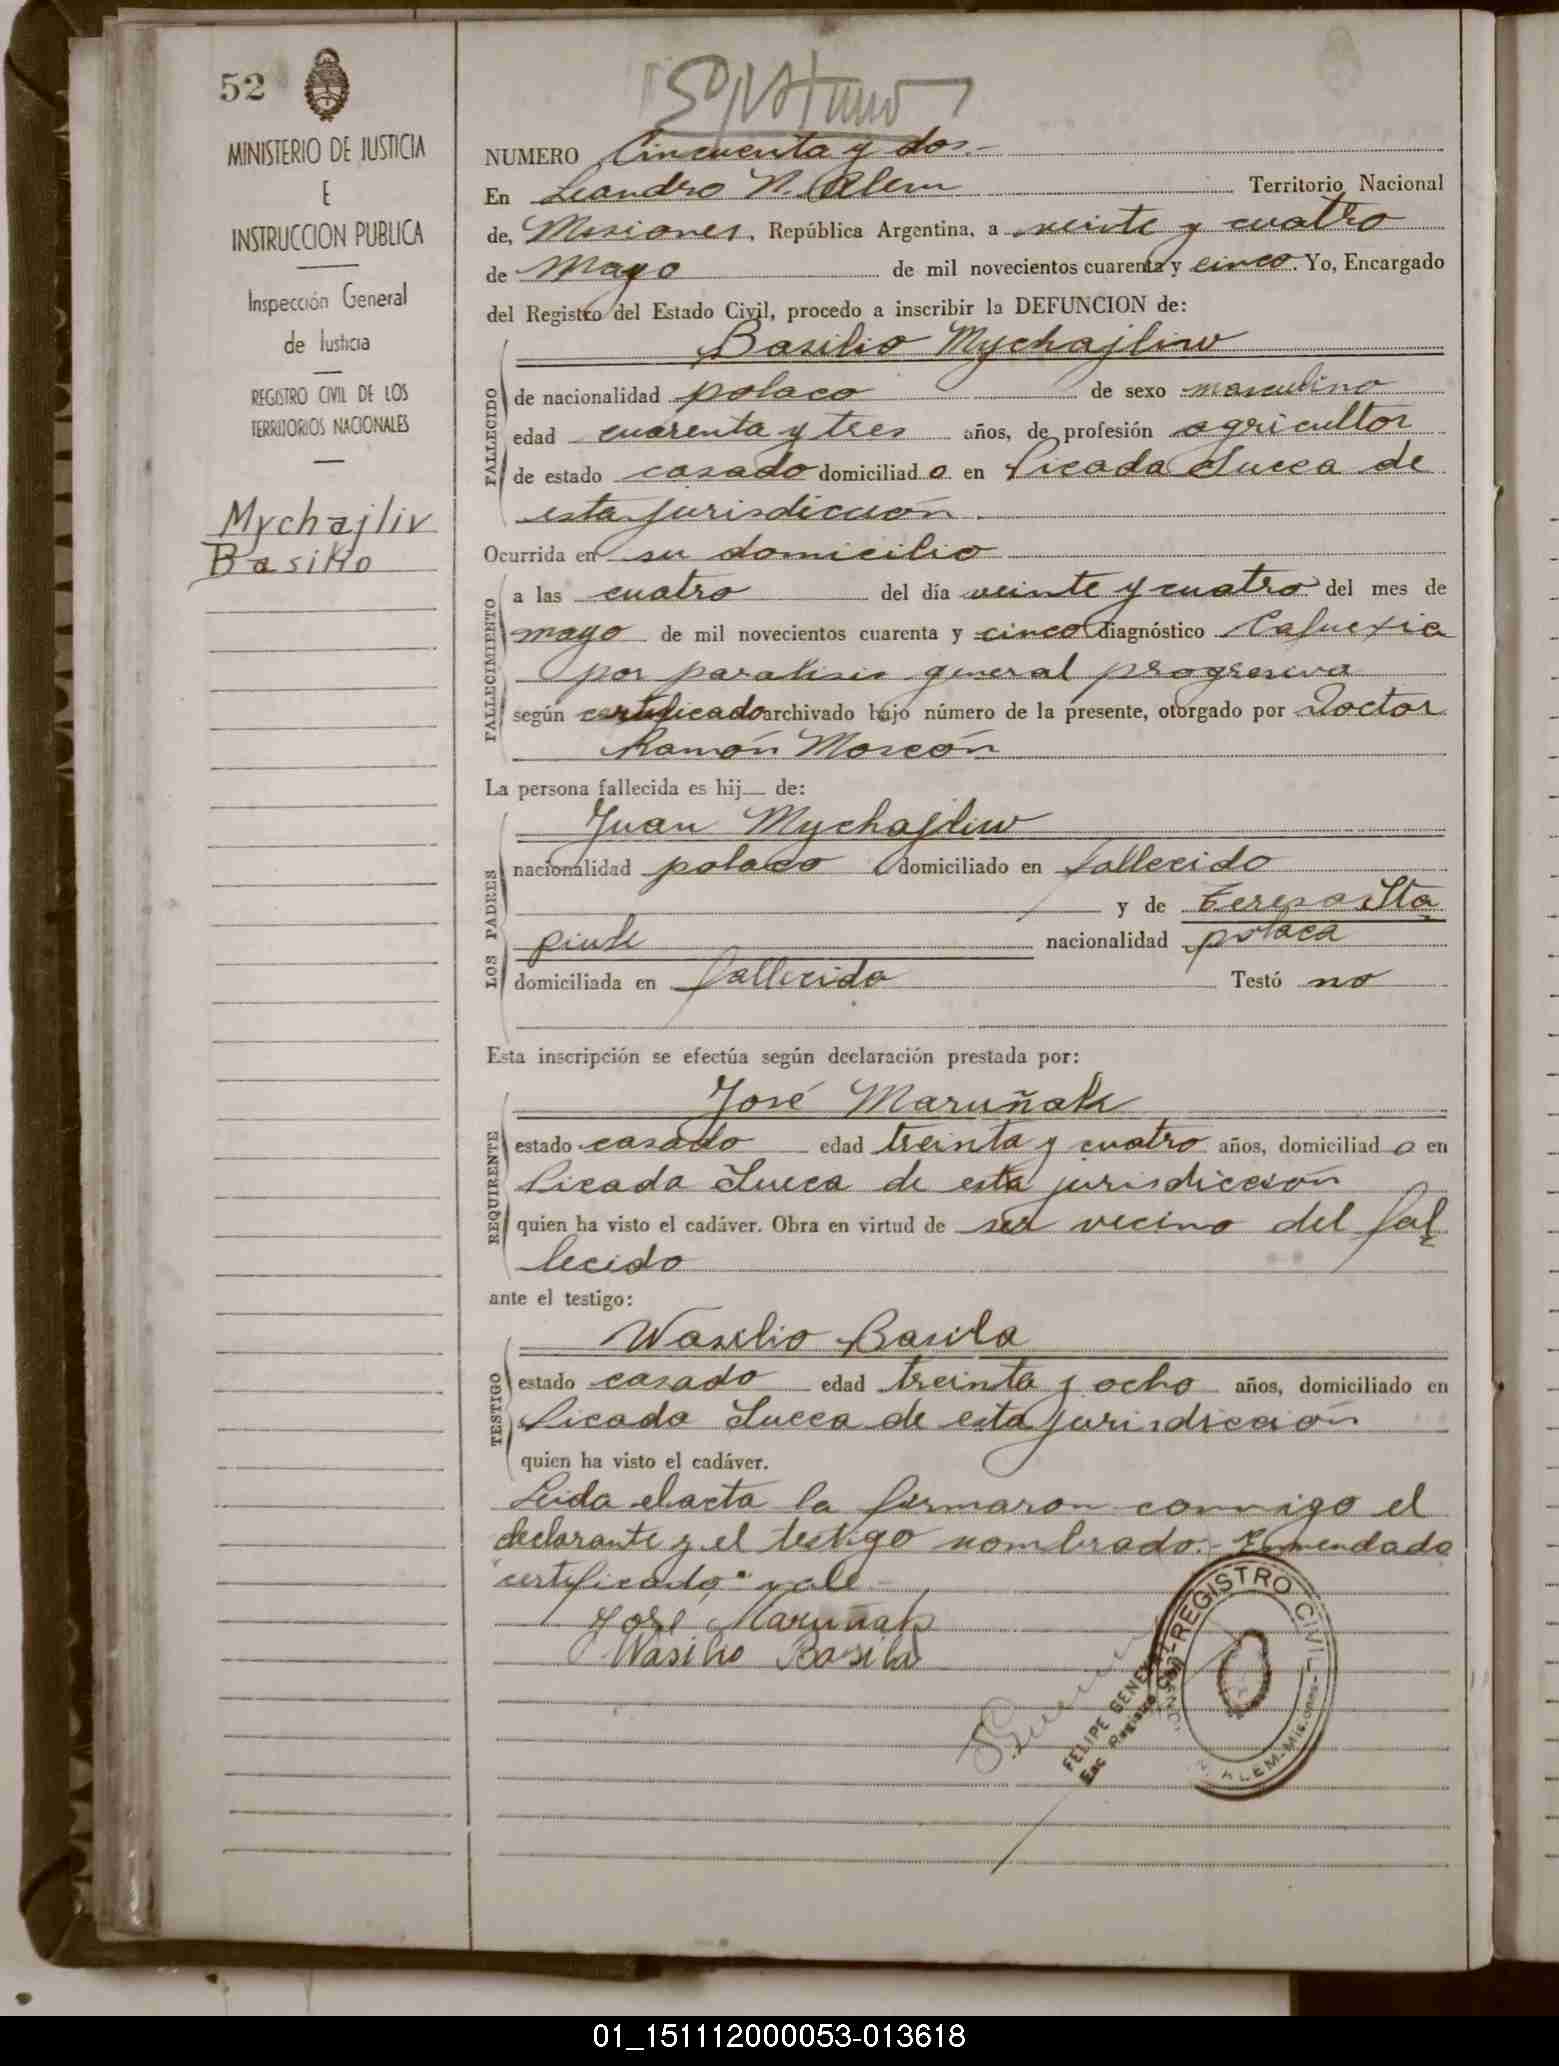 52
MINISTERIO DE JUSTICIA
E
INSTRUCCION PUBLICA
Inspección General
de Justicia
REGISTRO CIVIL DE LOS
TERRITORIOS NACIONALES
Mychajliv
Basilio
NUMERO Cincuenta y dos.-
En Leandro N. Alem Territorio Nacional
de, Misiones, República Argentina, a veinte y cuatro
de Mayo de mil novecientos cuarenta y cinco. Yo, Encargado
del Registro del Estado Civil, procedo a inscribir la DEFUNCION de:
Basilio Mychajliw
FALLECIDO
de nacionalidad polaco de sexo masculino
edad cuarenta y tres años, de profesión agricultor
de estado casado domiciliado en Picada Sueca de
esta jurisdiccion.
Ocurrida en su domicilio
FALLECIMIENTO
a las cuatro del día veinte y cuatro del mes de
mayo de mil novecientos cuarenta y cinco diagnóstico Caquexia
por paralisis general progresiva
según certificado archivado bajo número de la presente, otorgado por Doctor
Ramón
La persona fallecida es hij de:
LOS PADRES
Juan Mychajliw
nacionalidad polaco domiciliado en fallecido
y de Teresa Sta
piuk nacionalidad polaca
domiciliada en fallecida Testó no
Esta inscripción se efectúa según declaración prestada por:
REQUIRENTE
José Maruñak
estado casado edad treinta y cuatro años, domiciliado en
Picada Sueca de esta jurisdiccion
quien ha visto el cadáver. Obra en virtud de ser vecino del fal
lecido
ante el testigo:
TESTIGO
Wasilio Basila
estado casado edad treinta y ocho años, domiciliado en
Picada Sueca de esta jurisdiccion
quien ha visto el cadáver.
Leida el acta la firmaron conmigo el
declarante y el testigo nombrado.- Enmendado
"certificado" vale.-
José Maruñak
Wasilio Basila
REGISTRO CIVIL
ALEM-MISIONES-
FELIPE
Enc. Registro
01_151112000053-013618